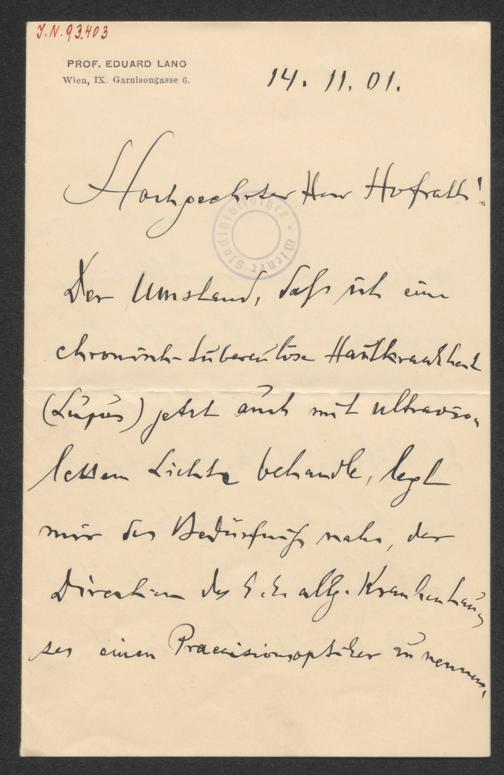 J.N. 93.403
PROF. EDUARD LANG
Wien, IX. Garnisongasse 6.
14. 11. 01.
Hochgeehrter Herr Hofrath!
Wiener Stadtbibliothek
Der Umstand, dass ich eine
chronisch-tuberculöse Hautkrankheit
(Lupus) jetzt auch mit ultravio-
lettem Lichte behandle, legt
mir das Bedürfniss nahe, der
Direction des k. k. allg. Krankenhau-
ses einen Praecisionsoptiker zu nennen,